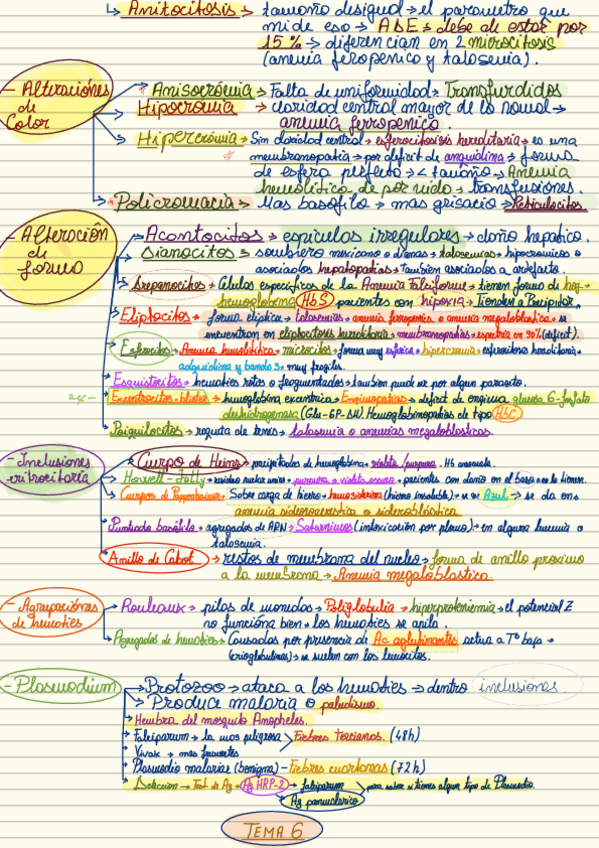 ↳ Anitocitosis → tamaño desigual → el parametro que
mide eso → ADE → debe de estar por
15 % → diferencian en 2 microcitosis
(anemia feropenico y talasemia).
- Alteraciones de Color
→ Anisocrómia → Falta de uniformidad → Transfundidos
Hipocromia → claridad central mayor de lo normal →
anemia ferropenico.
Hipercrómia → Sin claridad central → esferocitosis hereditaria → es una
membranopatia → por deficit de anquidina → forma
de esfera prefecto → < tamaño → Anemia
hemolitica de por vida → transfusiones.
Policromacia → Mas basofilo → mas grisacio → Reticulocitos.
- Alteración de forma
Acantocitos → espiculas irregulares → daño hepatico.
Dianocitos → sombrero mexicano o dianas → talasemias → hipocromicos o
asociados hepatopatias → tambien asociados a artefacto.
Drepanocitos → Células especificas de la Anemia Falciforme → tienen forma de hoz →
hemoglobina HbS pacientes con hipoxia → Tienden a Precipitar
Eliptocitos → forma eliptica → talasemias → anemia ferropenica o anemia megaloblastica → se
encuentran en eliptocitosis hereditaria → membranopatias → espectria en 90% (deficit).
Esferocitos → Anemia hemolitica → microcitos → forma muy esferica → hipercromia → esferocitosis hereditaria →
adquidina y banda 3 → muy fragiles.
Esquistocitos → hematies rotos o fragmentados → tambien puede ser por algun parasito.
Excentrocitos - blister → hemoglobina excentrica → Enzimopatias → deficit de enzima glucosa 6-fosfato
deshidrogenasa (Glu-6P-DH). Hemoglobinopatias de tipo HbC
→ raqueta de tenis → talasemia o anemias megaloblasticas.
- Inclusiones eritrocitaria
Cuerpo de Heinz → precipitados de hemoglobina → violeta/purpura. Hb anomala.
Howell-Jolly → residuo nuclear unico → purpura o violeta oscuro → pacientes con daño en el bazo → no lo tienen.
Cuerpos de Pappenheimer → Sobre carga de hierro → hemosiderina (hierro insoluble) → se ve Azul → se da en →
anemia sideroacrestica o sideroblástica
Punteado basófilo → agregados de ARN → Saturnismo (intoxicación por plomo) → en alguna leucemia o
talasemia.
Anillo de Cabot → restos de membrana del nucleo → forma de anillo proximo
a la membrana → Anemia megaloblastica.
- Agrupaciónes de hematies
Rouleaux → pilas de monedas → Poliglobulia → hiperproteinemia → el potencial Z
no funcióna bien → los hematies se apila.
Agregados de hematies → Causadas por presencia de Ac aglutinantes actua a Tº baja →
(crioglobulinas) → se suelen con los leucocitos.
- Plasmodium
→ Protozoo → ataca a los hematies → dentro inclusiones
Produce malaria o paludismo.
Hembra del mosquito Anopheles.
Falciparum → la mas peligrosa > Fiebres tercianas. (48h)
Vivax → mas frecuentes
Plasmodio malariae (benigna) → Fiebres cuartanas (72h)
Deteccion → Test de Ag → Ag HRP-2 → falciparum
→ Ag panmalarico
para saber si tienes algun tipo de Plasmodio.
TEMA 6